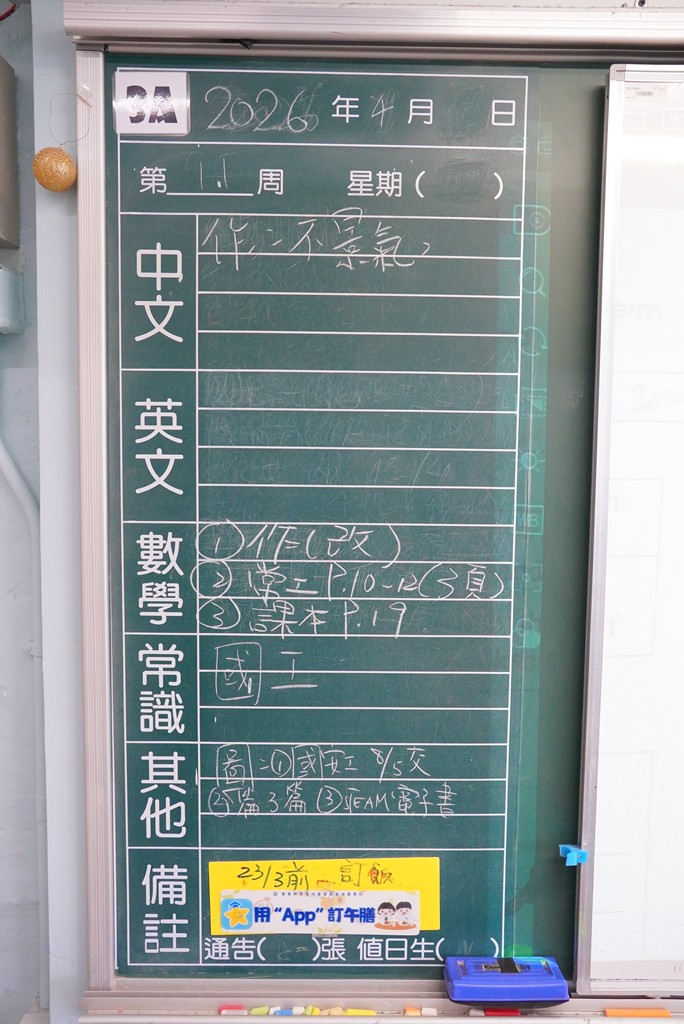 3A 2026 年 4 月 日
第 11 周 星期( )
中文 作:不景氣
英文
數學 ①作(改)
②常工P.10-12(3頁)
③課本P.19
常識 國 工
其他 圖:① 8/5交
3篇 ③STEAM電子書
備註
23/3前 訂飯
用“App”訂午膳
通告( )張 值日生( )